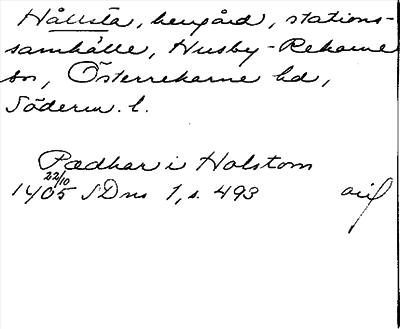 Hållsta, herrgård, stations-
samhälle, Husby-Rekarne
sn, Österrekarne hd,
Söderm. l.
Pædhar i Halstom
22/10
1405 SDns 1, s. 493